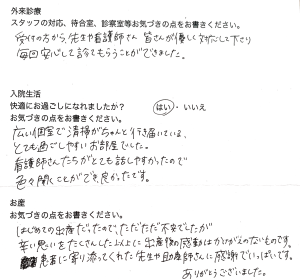 外来診療
スタッフの対応、待合室、診察室等お気づきの点をお書きください。
受付の方から、先生や看護師さん 皆さんが優しく対応して下さり
毎回安心して診てもらうことができました。
入院生活
快適にお過ごしになれましたか? はい・いいえ
お気づきの点をお書きください。
広い個室で清掃がちゃんと行き届いている、
とても過ごしやすいお部屋でした。
看護師さんたちがとても話しやすかったので
色々聞くことができ良かったです。
お産
お気づきの点をお書きください。
はじめての出産だったので、ただただ不安でしたが
辛い思いをたくさんした人以上に出産後の感動はかけがえのないものです。
患者に寄り添ってくれた先生や助産師さんに感謝でいっぱいです。
ありがとうございました。